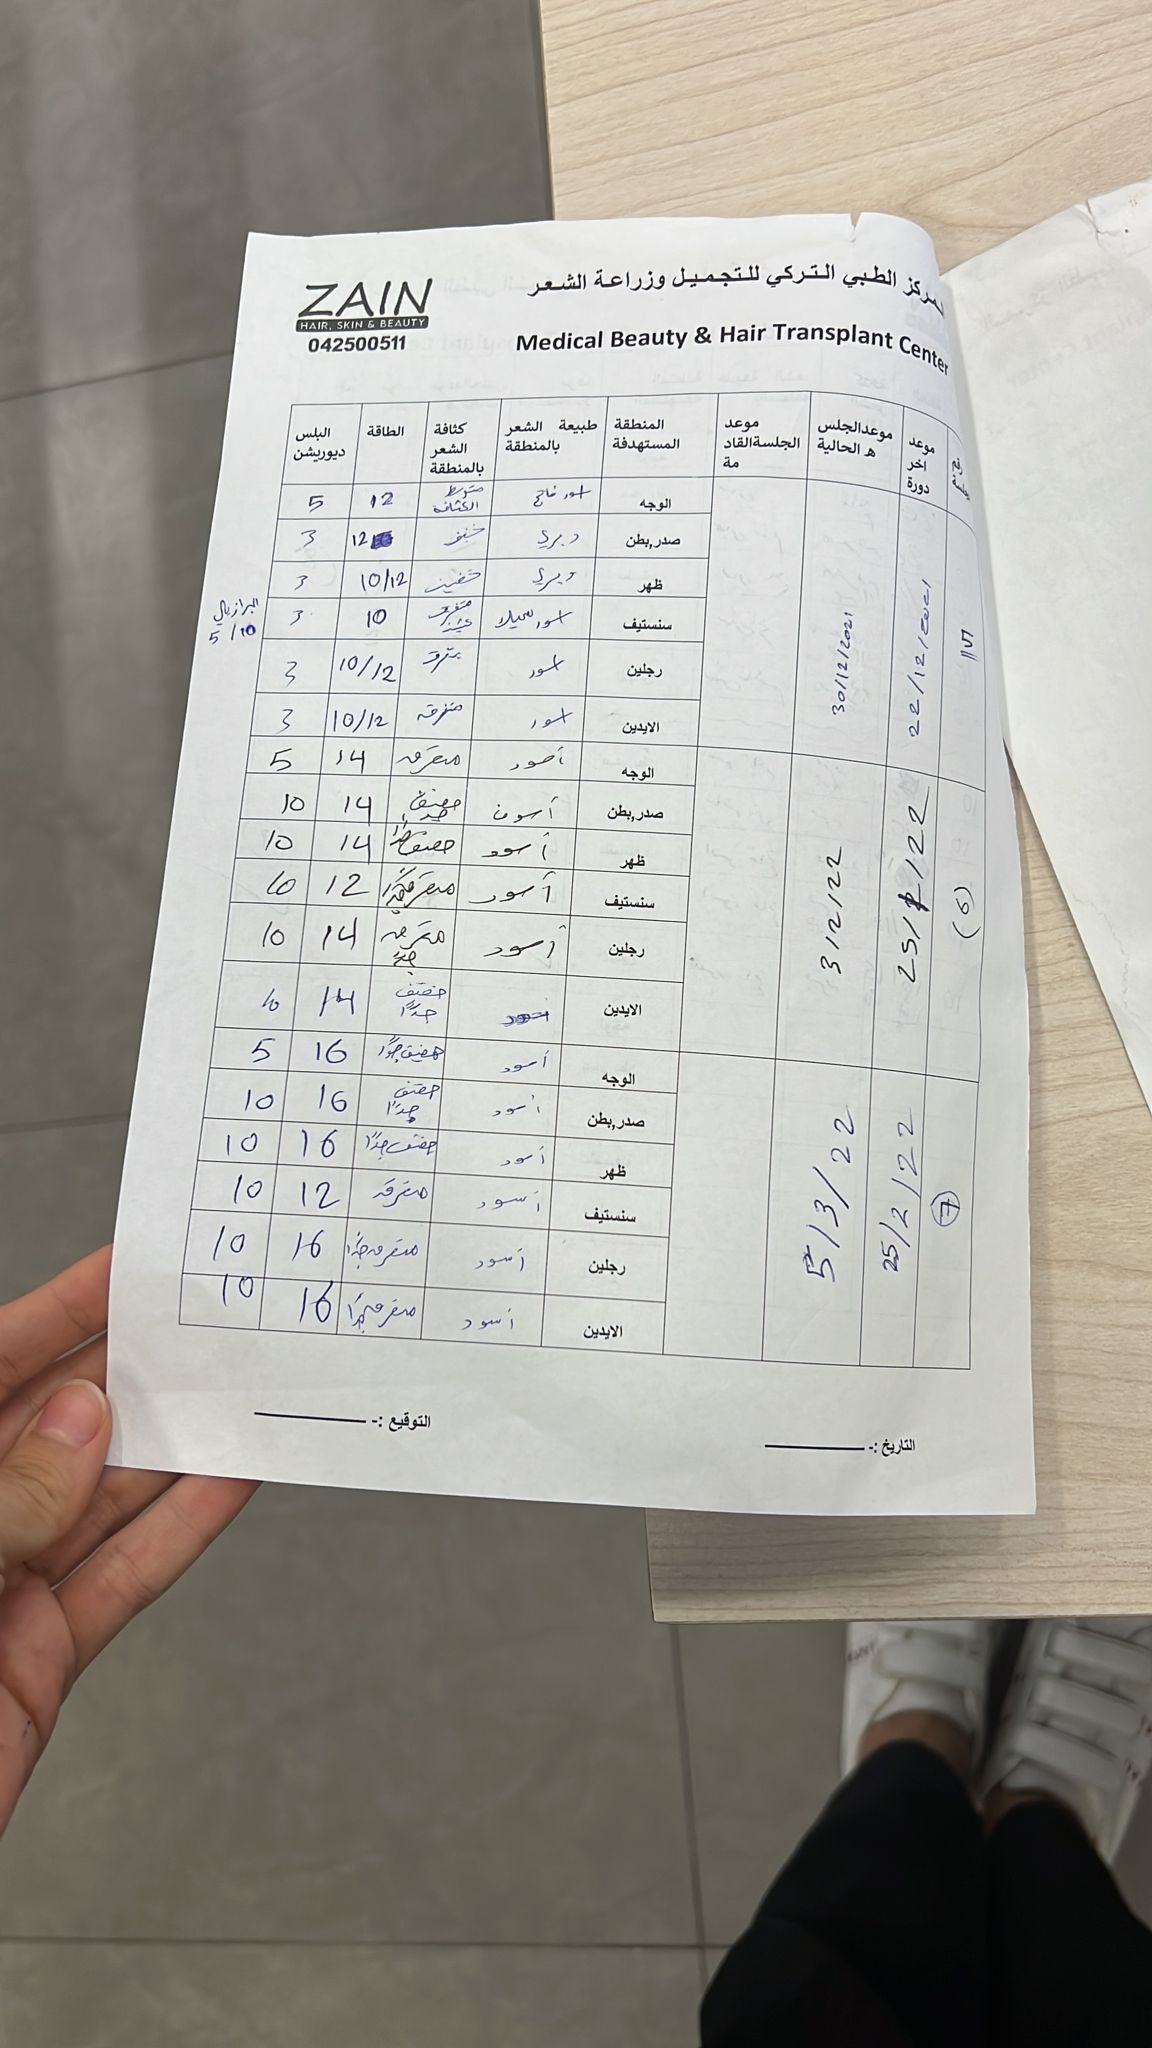 ZAIN
HAIR, SKIN & BEAUTY
042500511
المركز الطبي التركي للتجميل وزراعة الشعر
Medical Beauty & Hair Transplant Center
رقم موعد اخر دورة موعدالجلسه الحالية موعد الجلسةالقادمة المنطقة المستهدفة طبيعة الشعر بالمنطقة كثافة الشعر بالمنطقة الطاقة البلس ديوريشن
22/12/2021 30/12/2021
الوجه متوسط الكثافه 12 5
صدر,بطن وبري خفيف 12 3
ظهر وبري خفيف 10/12 3
سنستيف 10 3
البرازيلي 5/10
رجلين اسود 10/12 3
الايدين اسود متفرقه 10/12 3
(6) 3/2/22
الوجه أسود متفرقه 14 5
صدر,بطن خفيف جداً 14 10
ظهر أسود خفيف جداً 14 10
سنستيف أسود متفرقه جداً 12 10
رجلين أسود متفرقه جداً 14 10
الايدين خفيف جداً 14 10
7 25/2/22 5/3/22
الوجه أسود خفيف جداً 16 5
صدر,بطن أسود خفيف جداً 16 10
ظهر أسود خفيف جداً 16 10
سنستيف أسود متفرقه 12 10
رجلين أسود متفرقه جداً 16 10
الايدين أسود متفرقه جداً 16 10
التاريخ :- التوقيع :-